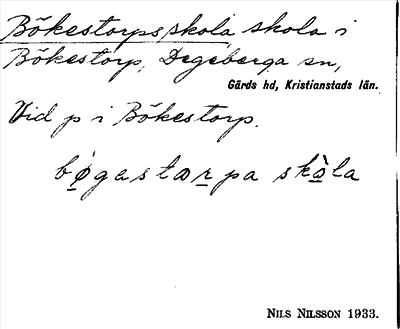 Bökestorps skola skola i
Bökestorp, Degeberga sn,
Gärds hd, Kristianstads län.
Vid p i Bökestorp.
bø̱gastɷṟpa skò̱la
NILS NILSSON 1933.